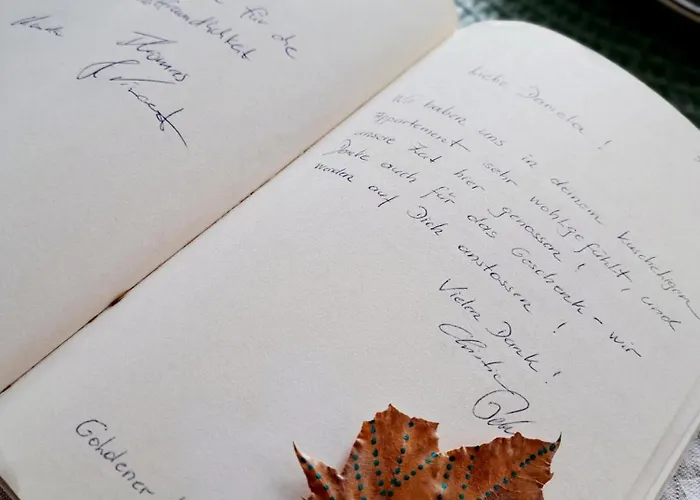 für die
Gastfreundlichkeit
Thomas
Vincent
Liebe Daniela!
Wir haben uns in deinem kuscheligen
Appartement sehr wohlgefühlt, und
unsere Zeit hier genossen!
Danke auch für das Geschenk - wir
werden auf Dich anstossen!
Vielen Dank!
Christine
Goldener